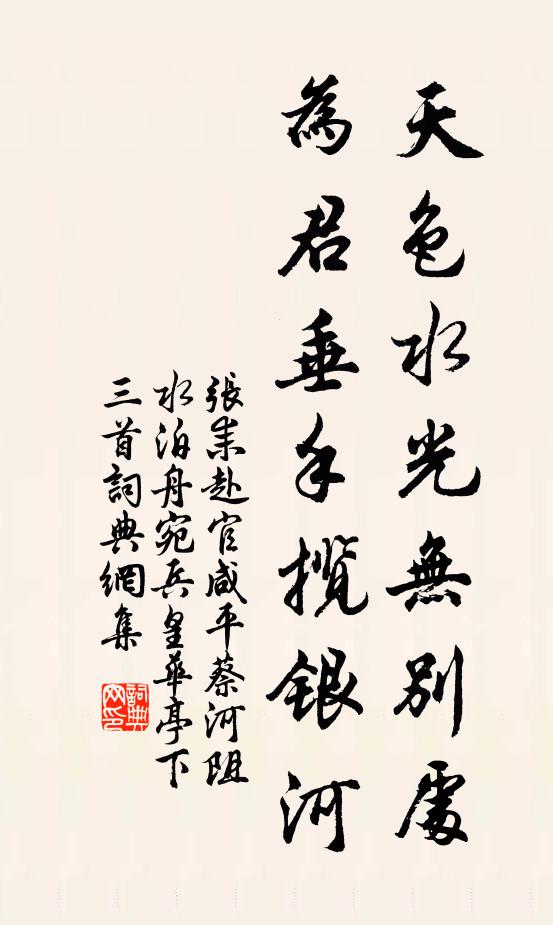 天色水光無別處
為君垂手攬銀河
張耒赴官咸平蔡河阻
水泊舟宛兵皇華亭下
三首詞典網集
詞典网印